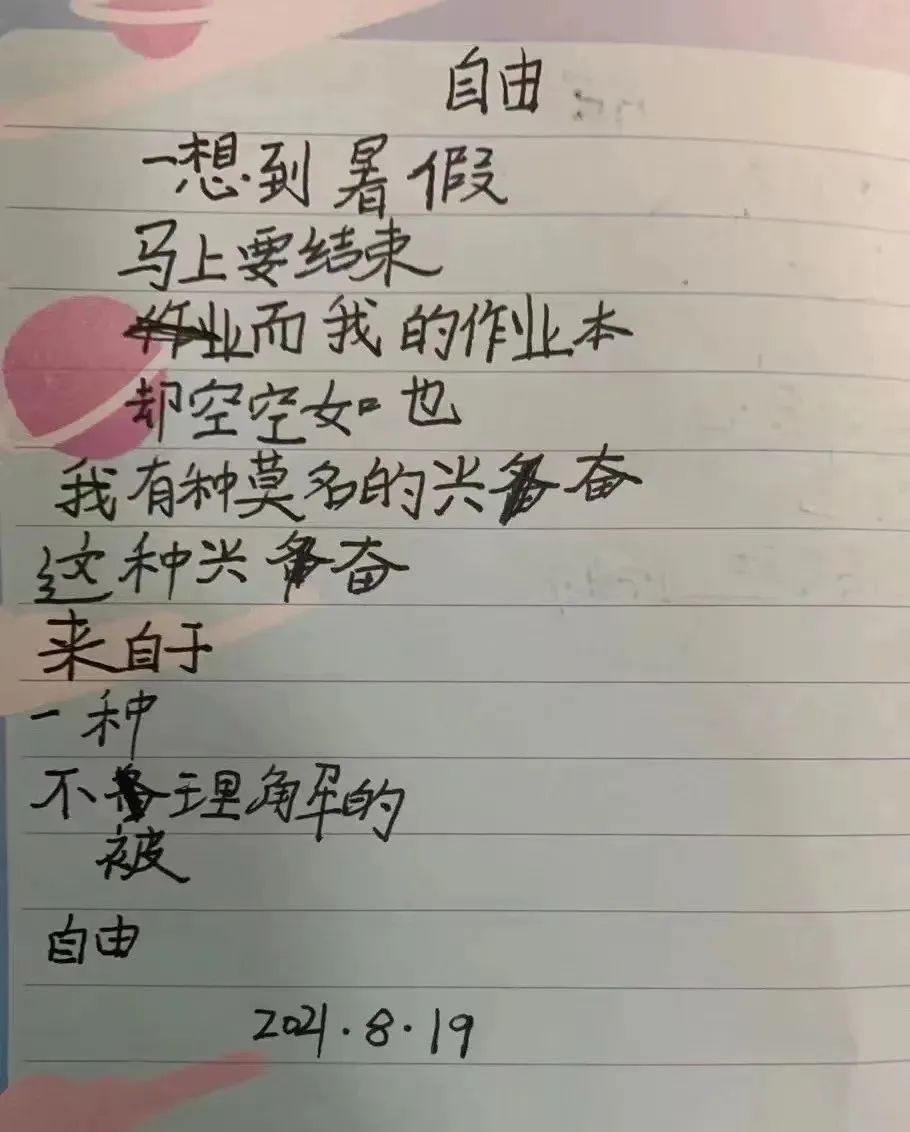 自由
一想到暑假
马上要结束
作业而我的作业本
却空空如也
我有种莫名的兴奋
这种兴奋
来自于
一种
不被理解的
自由
2021.8.19